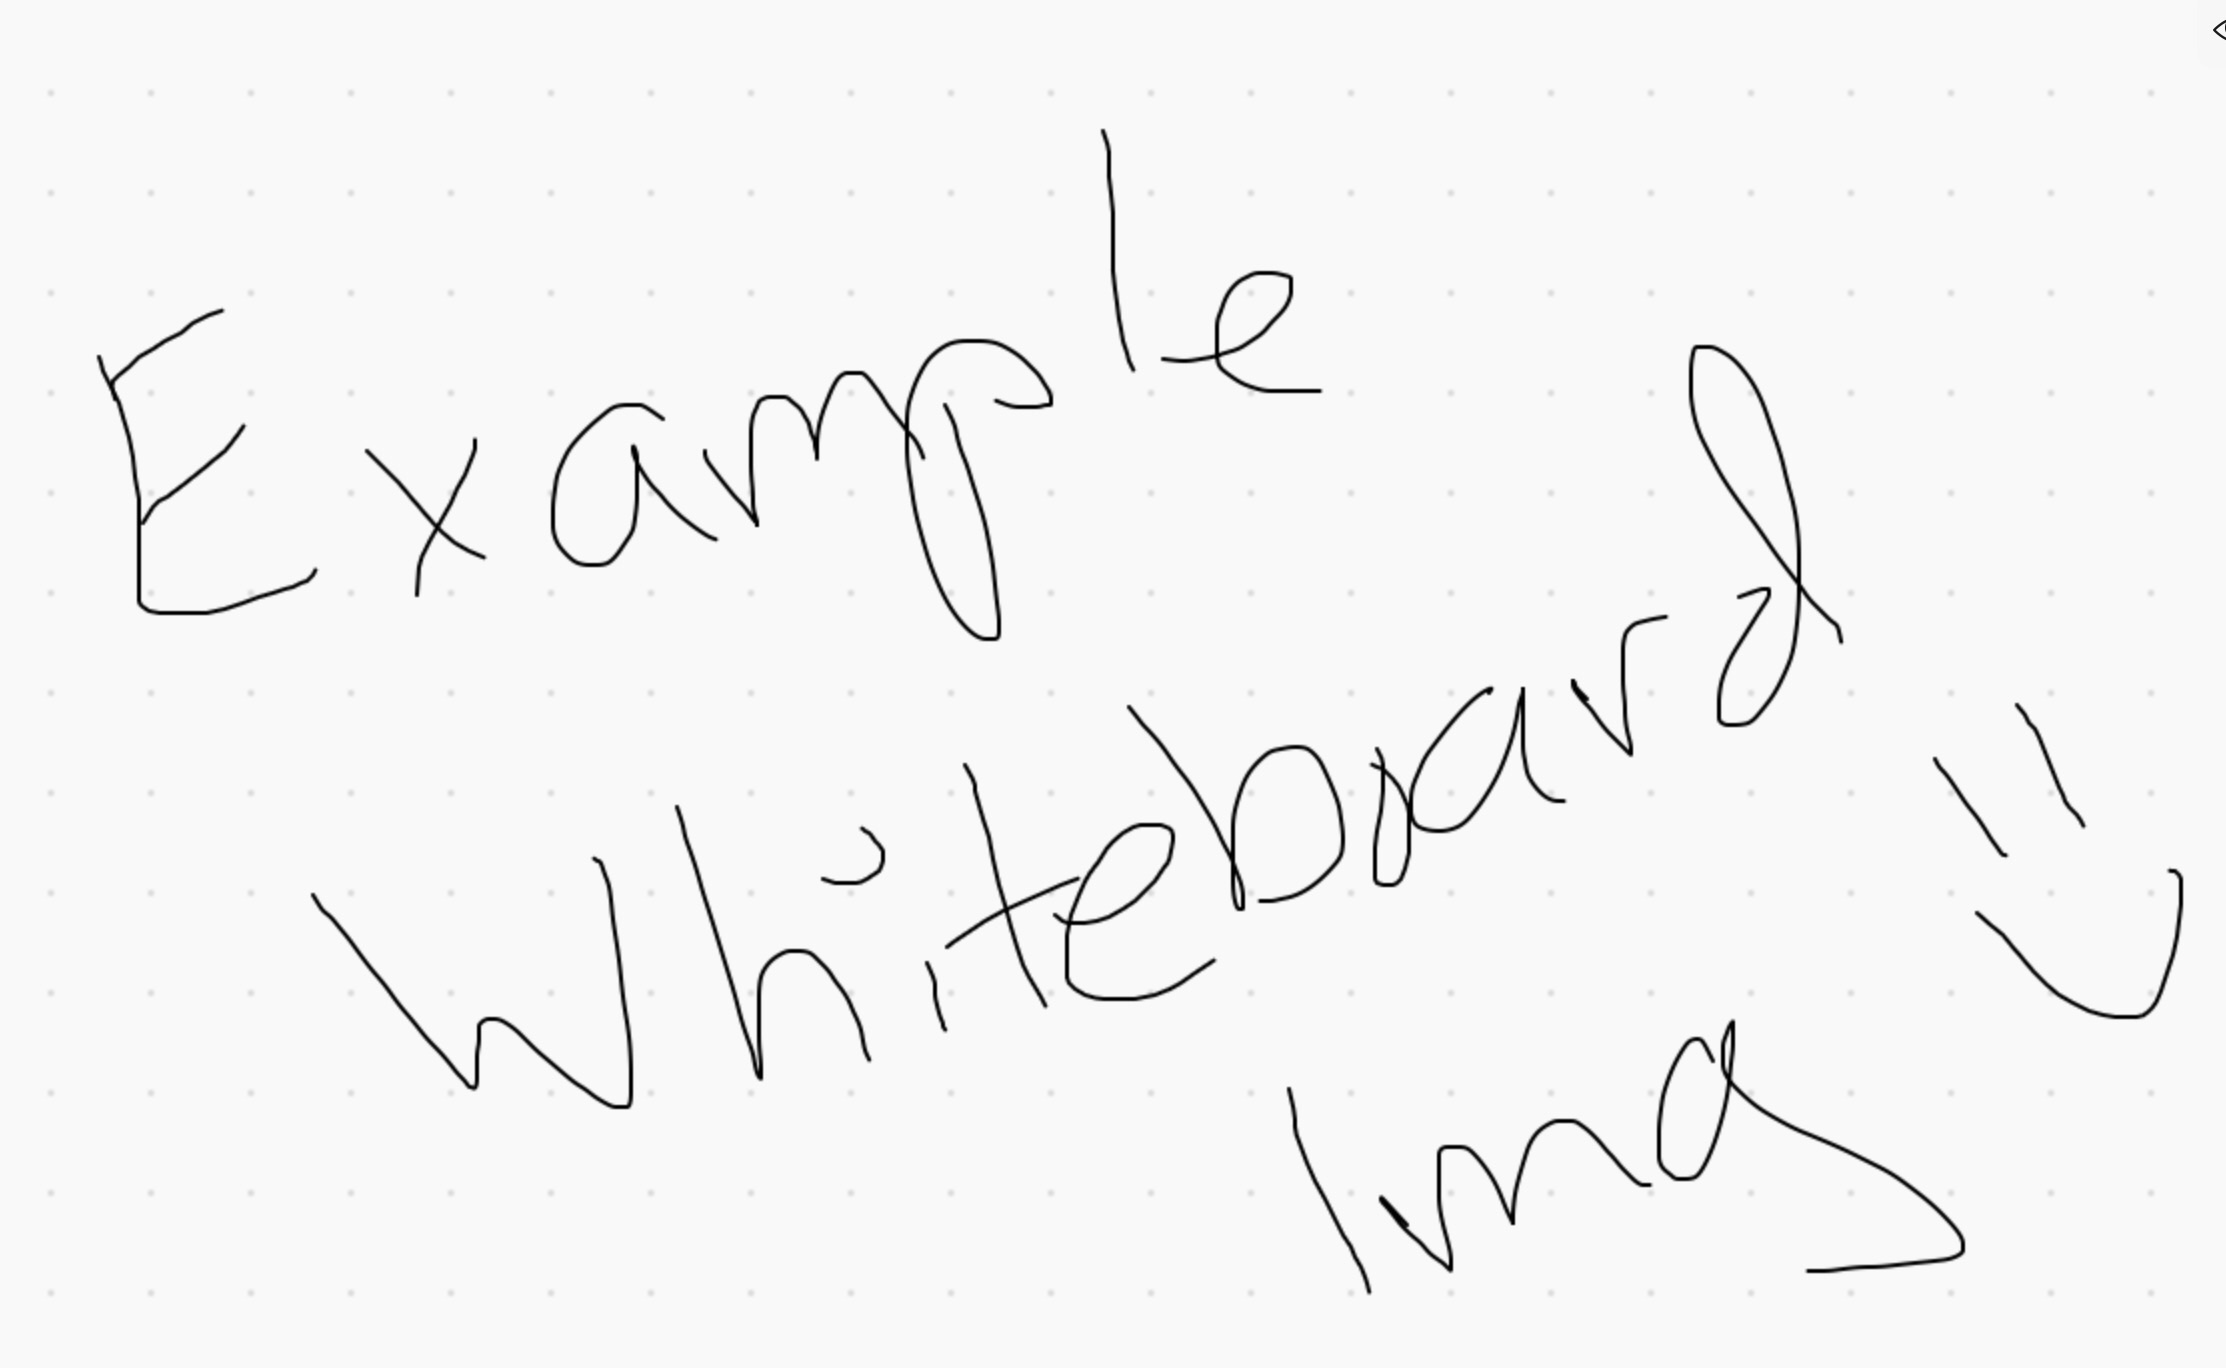 Example
Whiteboard
Img